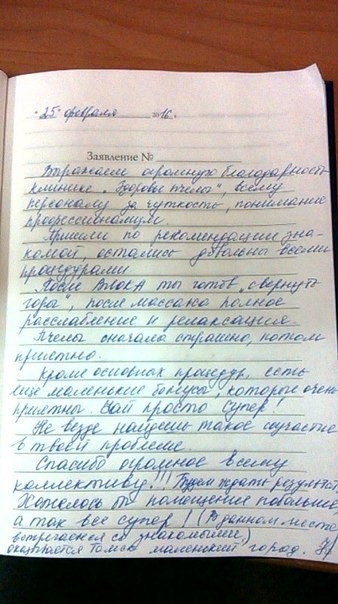 "25" февраля 2016.
Заявление №
Выражаем огромную благодарность
клинике "Здоровье пчелы", всему
персоналу за чуткость, понимание
профессионализм.
Пришли по рекомендации зна-
комой, остались довольны всеми
процедурами
После ты готов "свернуть
горы", после массажа полное
расслабление и релаксация.
Пчелы сначала страшно, потом
приятно.
Кроме основных процедур, есть
еще маленькие бонусы, которые очень
приятны. Чай просто супер!
Не везде найдешь такое участие
в твоей проблеме.
Спасибо огромное всему
коллективу!!! Будем ждать результат.
Хотелось бы помещение побольше,
а так все супер! (В данном месте
встречаемся со знакомыми,)
оказывается Томск маленький город.